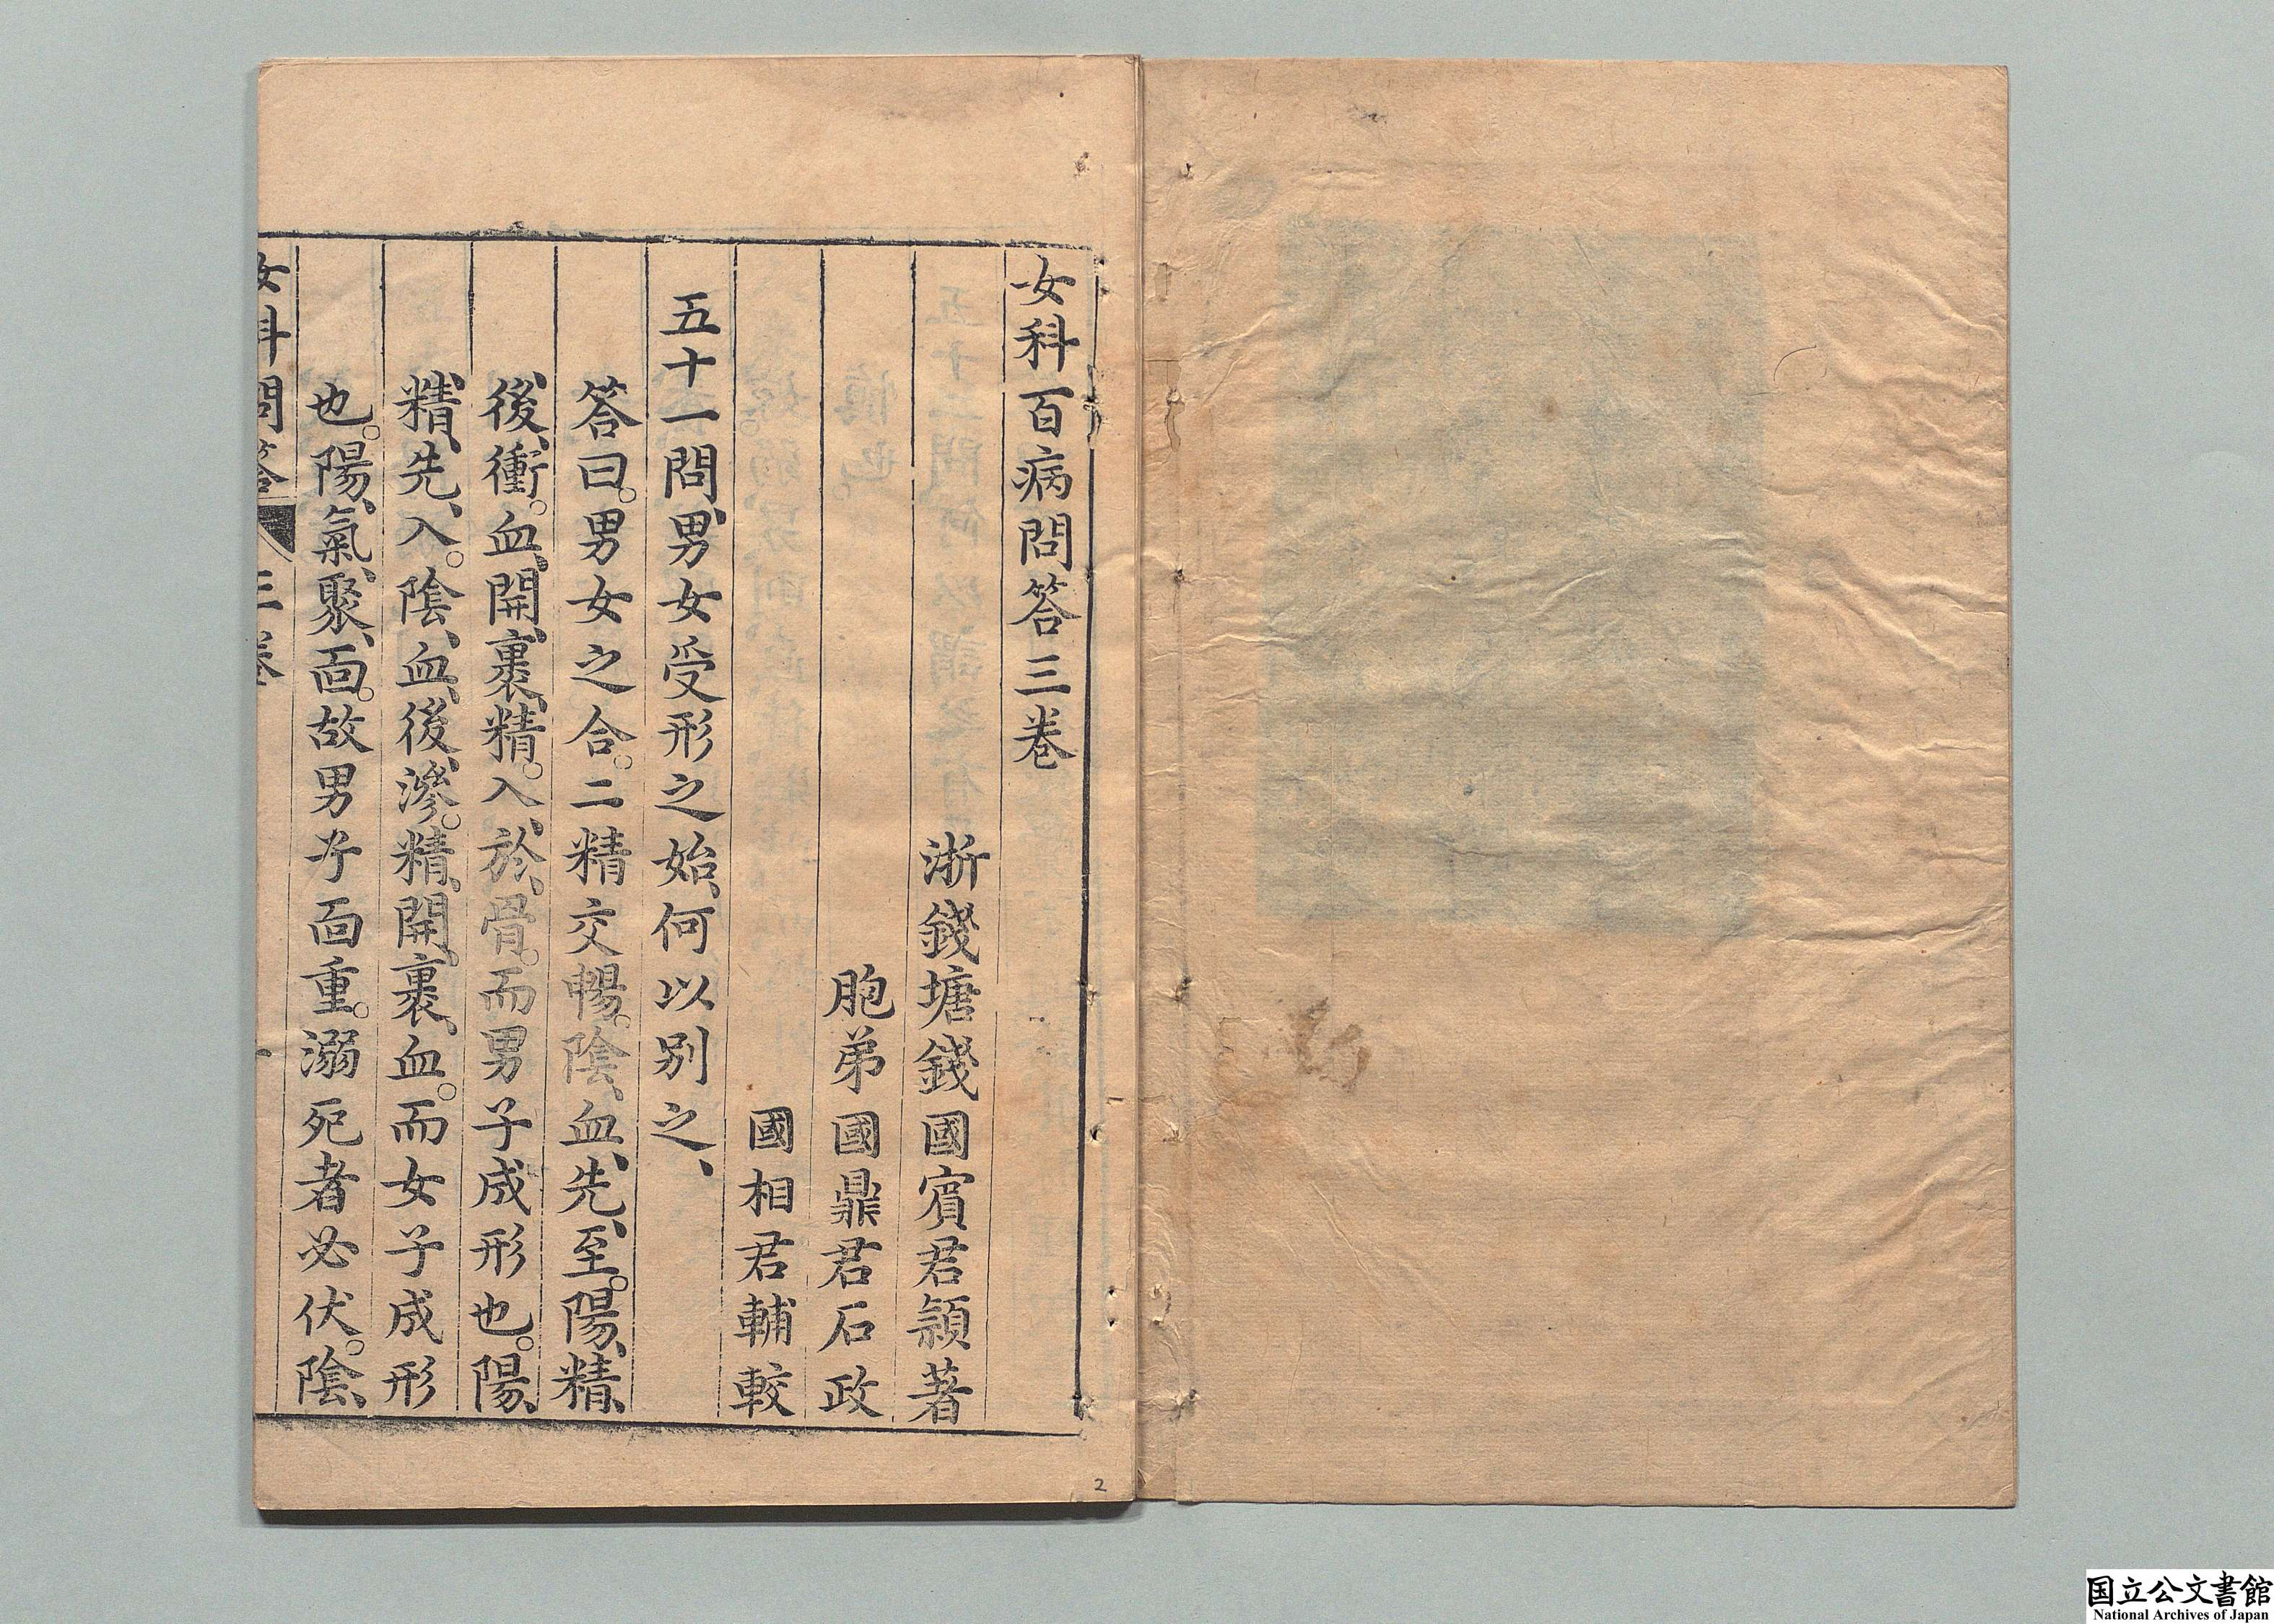 女科百病問答三卷
浙錢塘錢國賓君頴著
胞弟國鼎君石政
國相君輔較
五十一問男女受形之始、何以別之、
答曰。男女之合。二精交暢。陰、血、先、至。陽、精、
後、衝。血、開、裹、精。入、於、骨。而男子成形也。陽、
精、先、入。陰、血、後、滲。精、開、裹、血。而女子成形
也。陽、氣、聚、面。故男子面重。溺死者必伏。陰、
女科問答 三卷
2
国立公文書館
National Archives of Japan